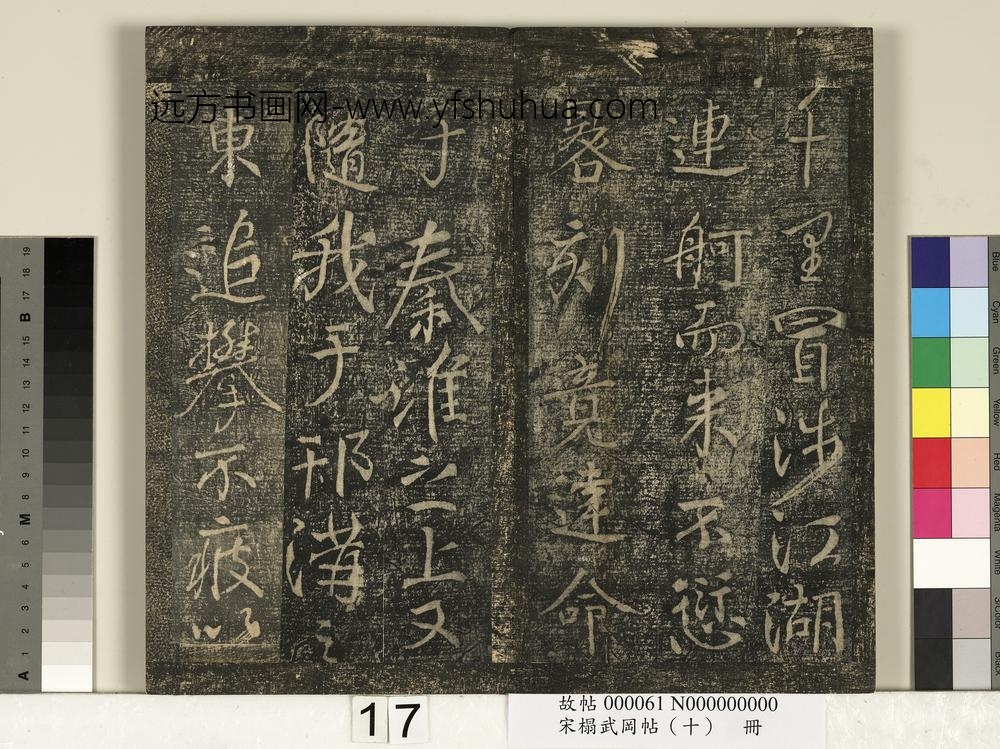 千里冒涉江湖
連舸而來不愆
晷刻竟達命
于秦淮之上又
隨我于邗溝之
東追攀不疲以
远方书画网-www.yfshuhua.com
17
故帖 000061 N000000000
宋榻武岡帖（十） 冊
A 1 2 3 4 5 6 M 8 9 10 11 12 13 14 15 B 17 18 19
Blue
Cyan
Green
Yellow
Red
Magenta
White
Black